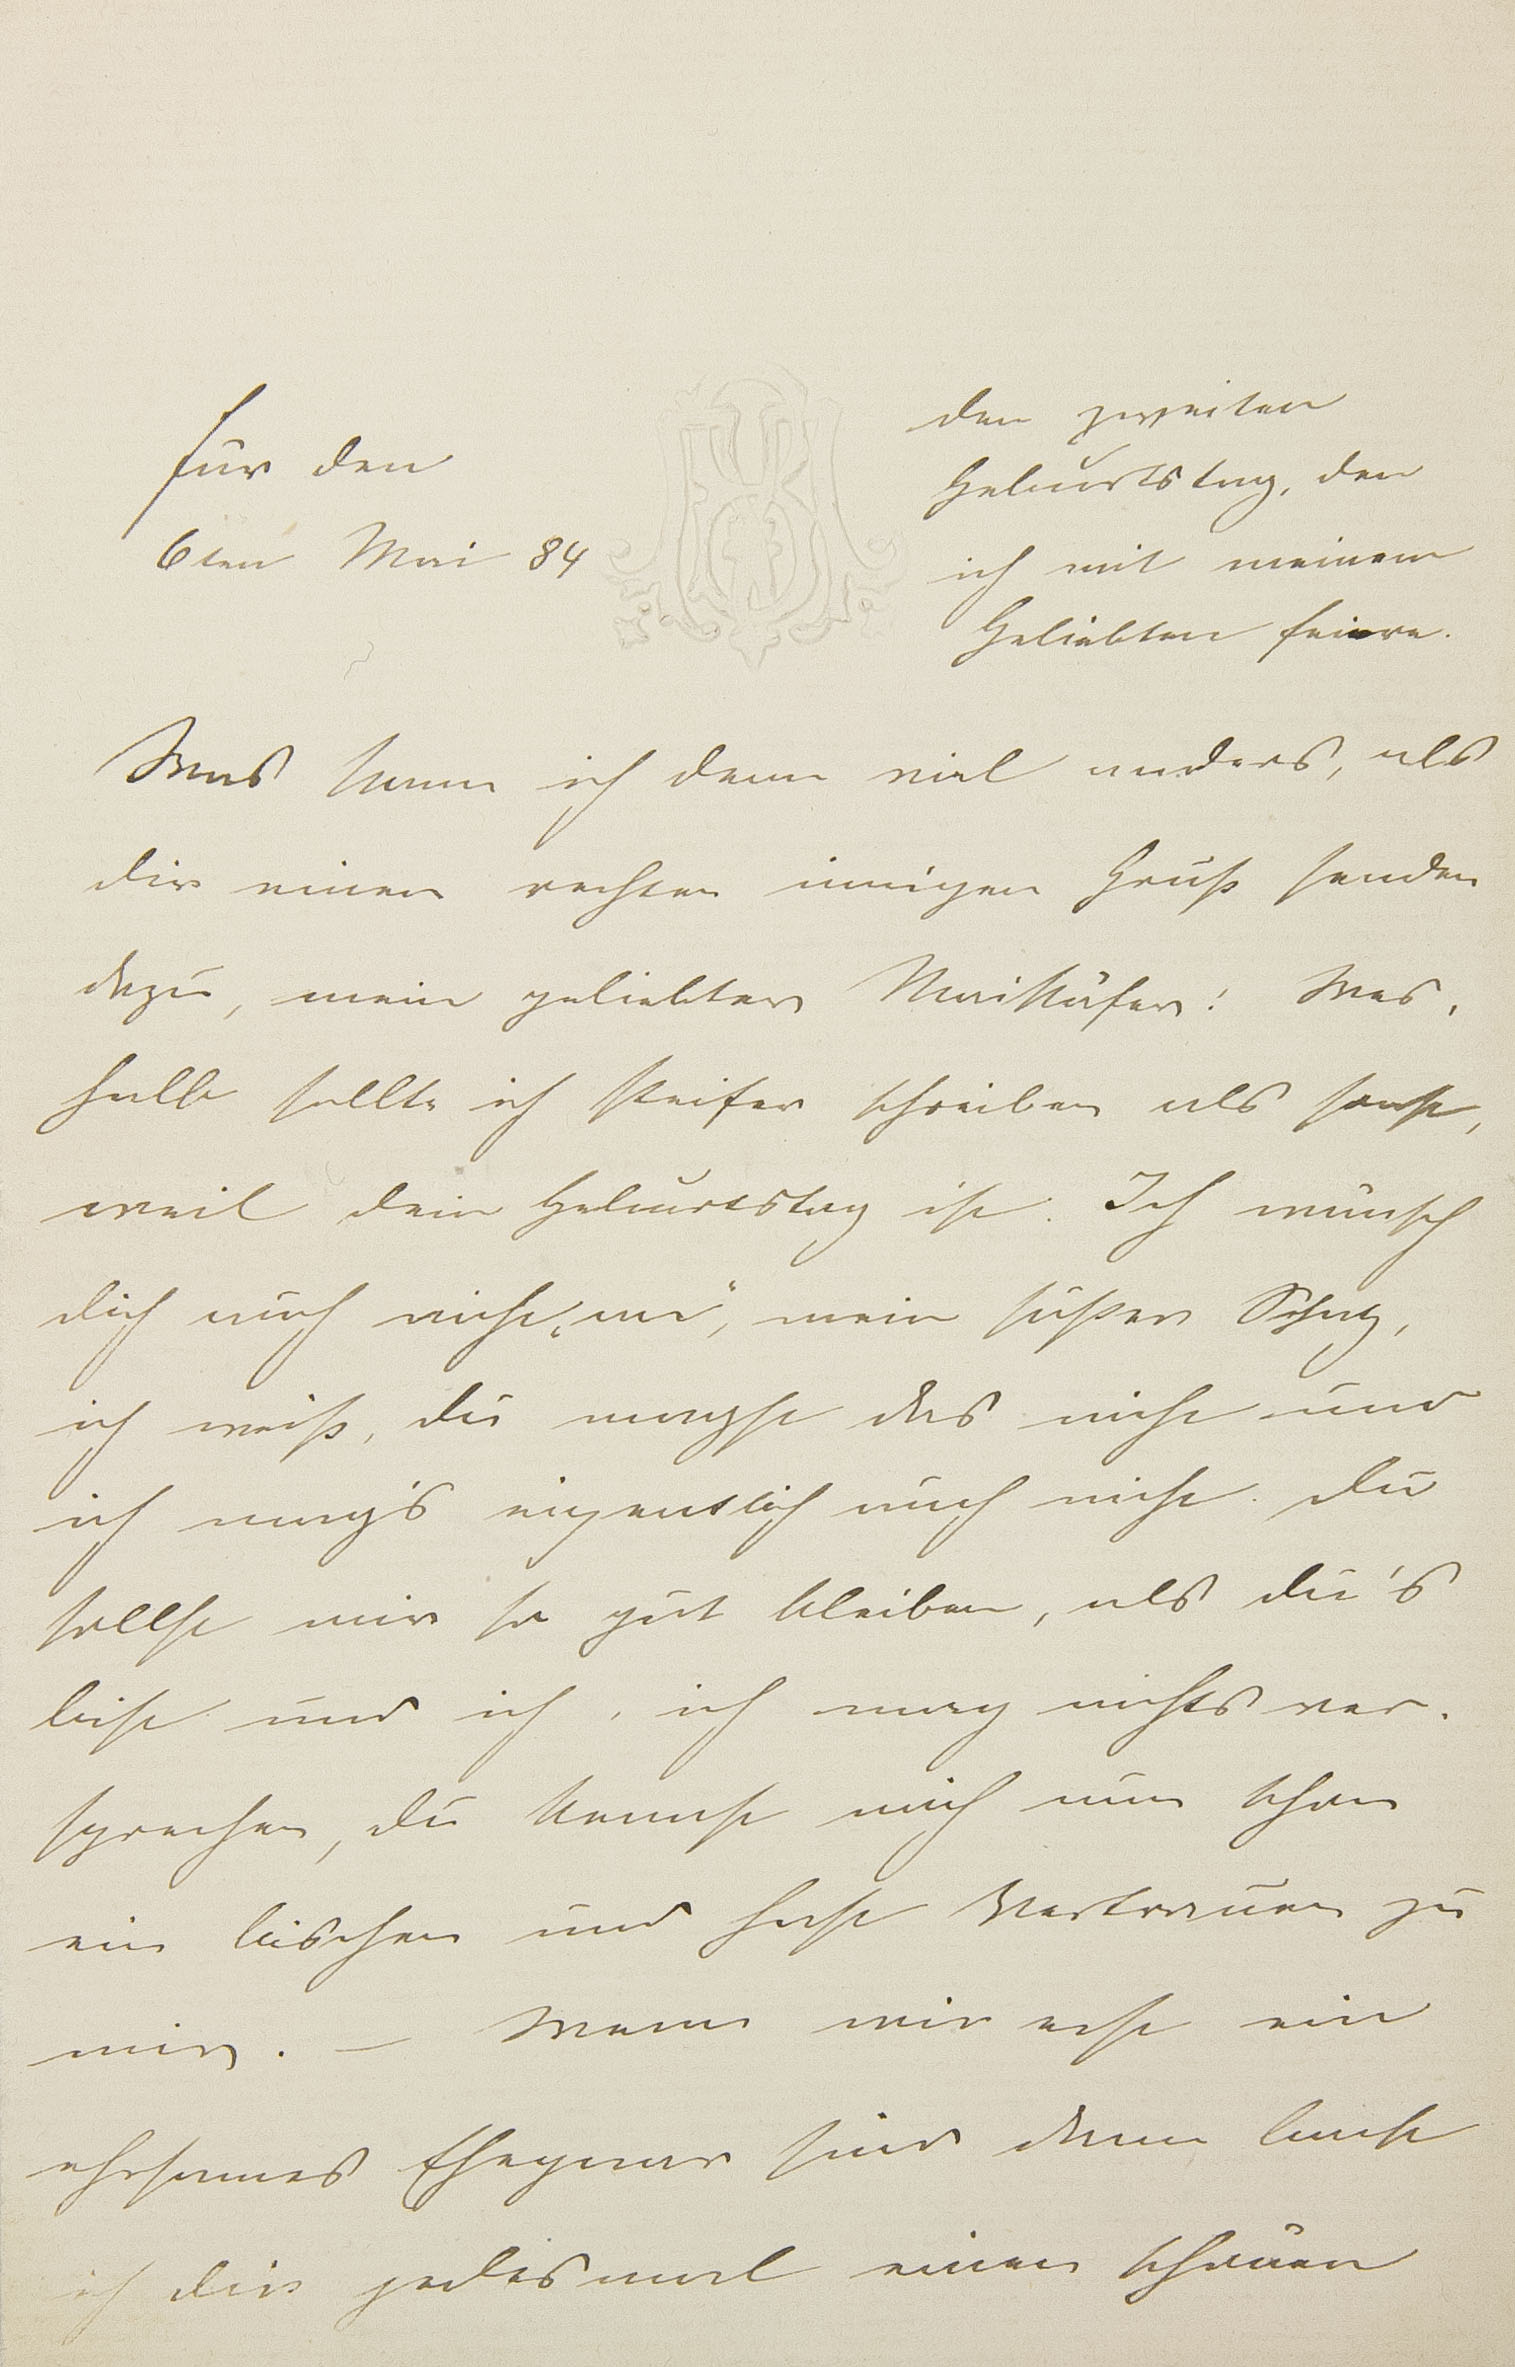 für den
6ten Mai 84
den zweiten
Geburtstag, den
ich mit meinem
Geliebten feiere.
Was kann ich denn viel anders, als
dir einen rechten innigen Gruß senden
dazu, mein geliebter Maikäfer! Wes,
halb sollte ich steifer schreiben als sonst,
weil dein Geburtstag ist. Ich wünsch
dich auch nicht „an“, mein süßer Schatz,
ich weiß, du magst das nicht und
ich mag's eigentlich auch nicht. Du
sollst mir so gut bleiben, als du's
bist und ich, ich mag nichts ver-
sprechen, du kennst mich nun schon
ein bischen und hast Vertrauen zu
mir. — Wenn wir erst ein
ehrsames Ehepaar sind dann back
ich dir jedesmal einen schönen